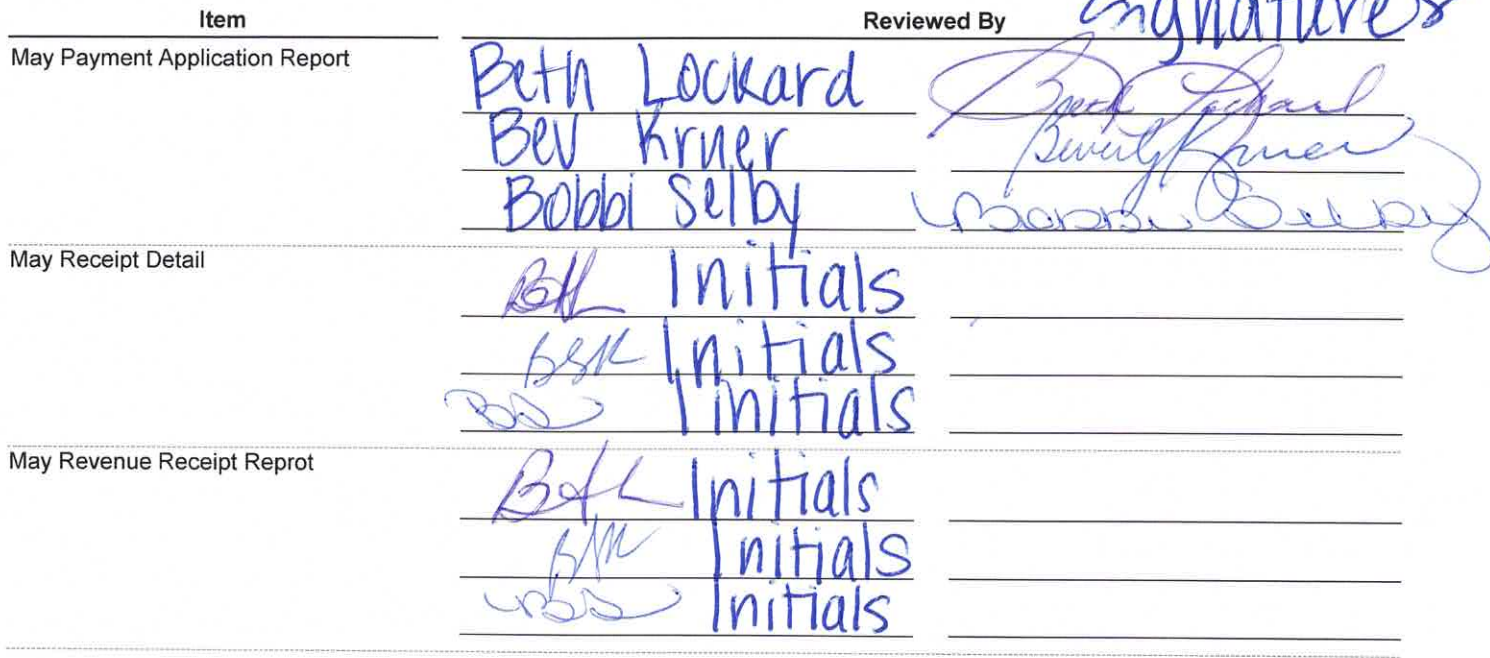 Item Reviewed By Signatures
May Payment Application Report
Beth Lockard Beth Lockard
Bev Kruer Beverly Kruer
Bobbi Selby Bobbi Selby
May Receipt Detail
Initials
BSK Initials
BS Initials
May Revenue Receipt Reprot
Initials
Initials
Initials